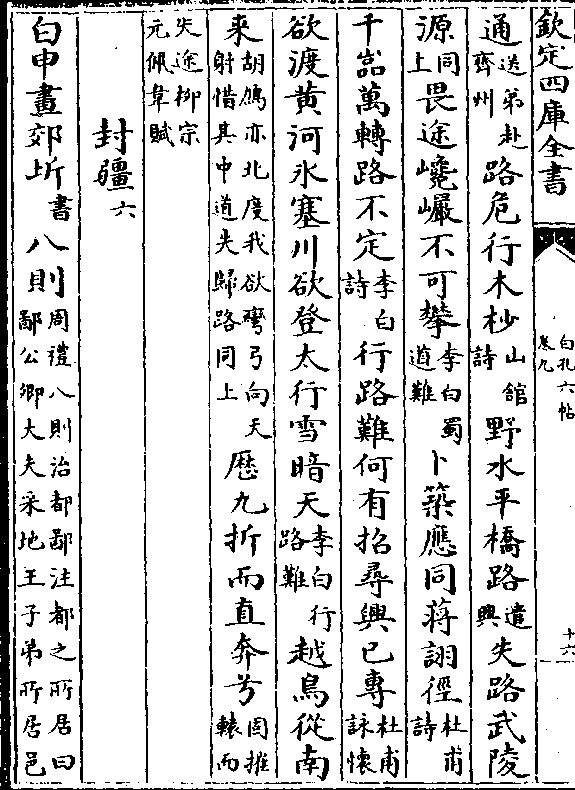 欽定四庫全書
白孔六帖
卷九
十六
通送弟赴齊州路危行木杪山館詩野水平橋路遣興失路武陵
源同上畏途巉巖不可攀李白蜀道難卜築應同蔣詡徑杜甫詩
千嵓萬轉路不定李白詩行路難何有招尋興已專杜甫詠懷
欲渡黄河氷塞川欲登太行雪暗天李白行路難越鳥從南
来胡鴈亦北度我欲彎弓向天射惜其中道失歸路同上歴九折而直奔兮固摧轅而
失途柳宗元佩韋賦
封疆六
白申畫郊圻書八則周禮八則治都鄙注都之所居曰鄙公卿大夫采地王子弟所居邑